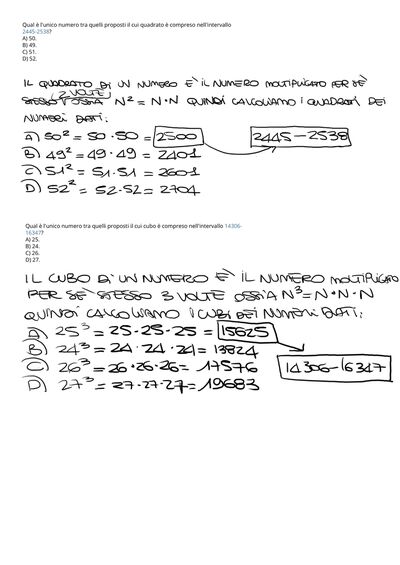 Qual è l'unico numero tra quelli proposti il cui quadrato è compreso nell'intervallo
2445-2538?
A) 50.
B) 49.
C) 51.
D) 52.
IL QUADRATO DI UN NUMERO E' IL NUMERO MOLTIPLICATO PER SE'
STESSO 2 VOLTE OSSIA N² = N·N QUINDI CALCOLIAMO I QUADRATI DEI
NUMERI DATI:
A) 50² = 50·50 = 2500 2445-2538
B) 49² = 49·49 = 2401
C) 51² = 51·51 = 2601
D) 52² = 52·52 = 2704
Qual è l'unico numero tra quelli proposti il cui cubo è compreso nell'intervallo 14306-
16347?
A) 25.
B) 24.
C) 26.
D) 27.
IL CUBO DI UN NUMERO E' IL NUMERO MOLTIPLICATO
PER SE' STESSO 3 VOLTE OSSIA N³=N·N·N
QUINDI CALCOLIAMO I CUBI DEI NUMERI DATI:
A) 25³ = 25·25·25 = 15625
B) 24³ = 24·24·24 = 13824
C) 26³ = 26·26·26 = 17576 14306-16347
D) 27³ = 27·27·27 = 19683